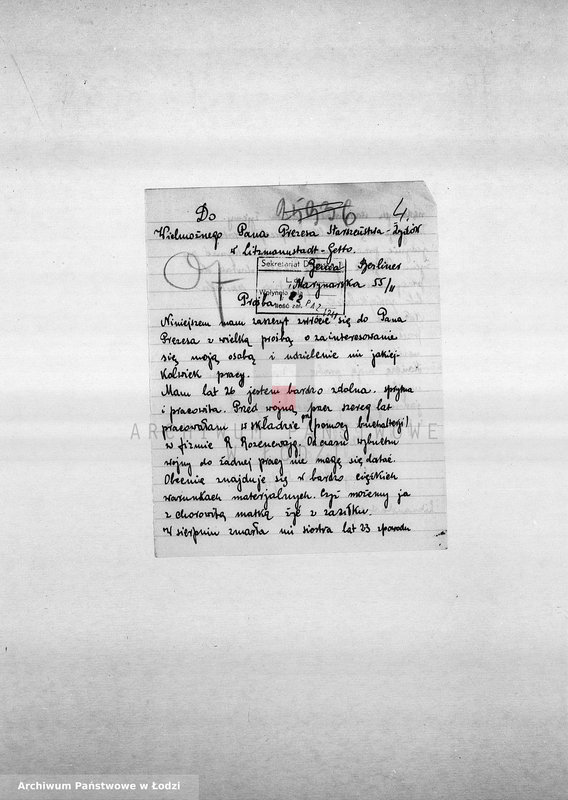 4.
Do
Wielmożnego Pana Prezesa Starszeństwa-Żydów
w Litzmannstadt-Getto.
Sekretariat
Berliner
Marynarska 55/11
Wpłynęło dnia
Prośba
Niniejszem mam zaszczyt zwrócić się do Pana
Prezesa z wielką prośbą o zainteresowanie
się moją osobą i udzielenie mi jakiej-
kolwiek pracy.
Mam lat 26 jestem bardzo zdolna. sprytna
i pracowita. Przed wojną przez szereg lat
pracowałam w składzie (pomocy buchalterji)
w firmie R. Rozenwajg. Od czasu wybuchu
wojny do żadnej pracy nie mogę się dostać.
Obecnie znajduję się w bardzo ciężkich
warunkach materjalnych. Czyż możemy ja
z chorowitą matką żyć z zasiłku.
W sierpniu zmarła mi siostra lat 23 spowodu
ARCHIWUM PAŃSTWOWE
W ŁODZI
Archiwum Państwowe w Łodzi